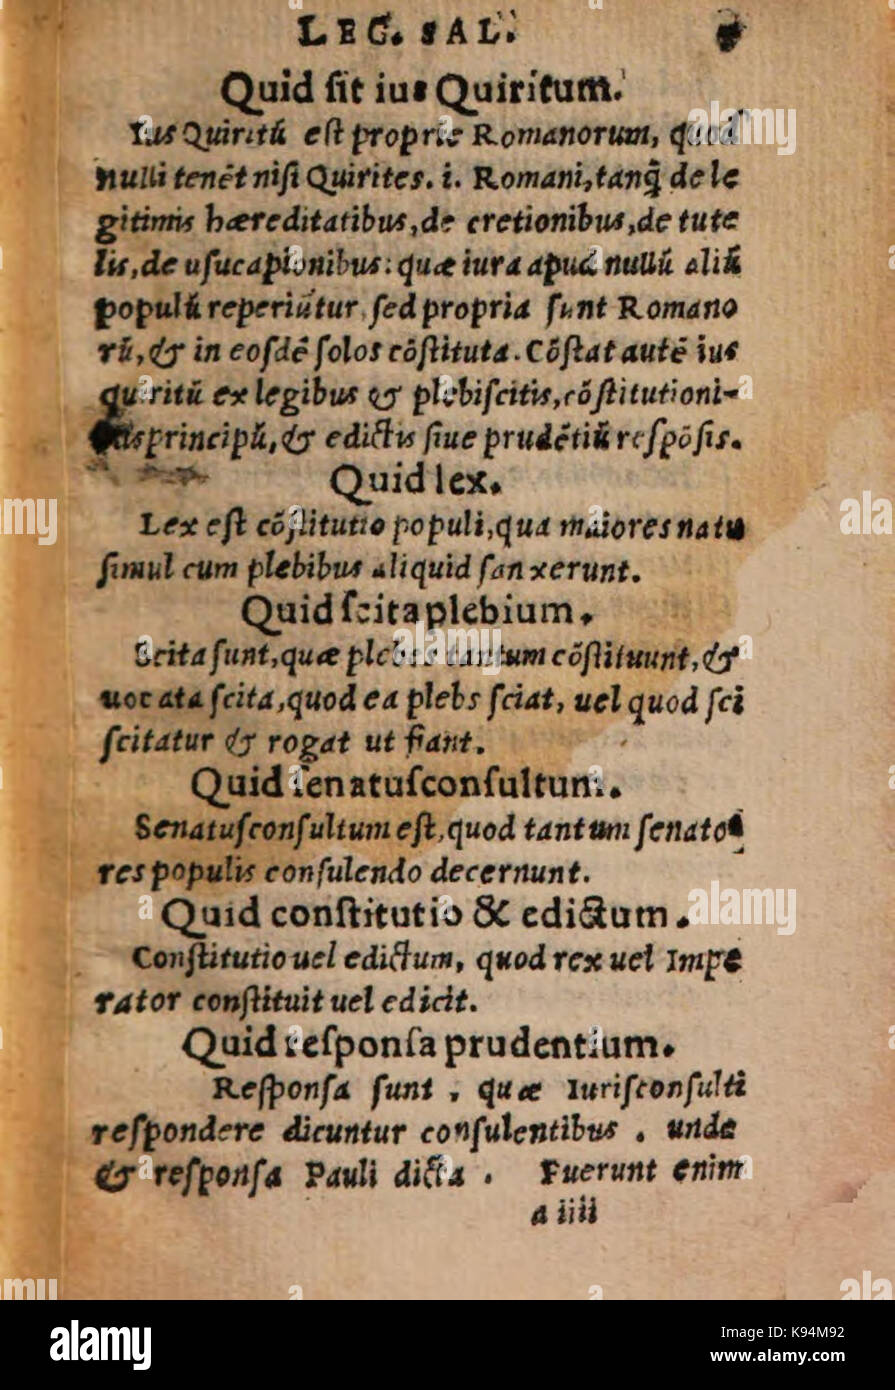 LEG. SAL. 4
Quid ſit ius Quiritum.
Ius Quiritū eſt proprie Romanorum, quod
nulli tenēt niſi Quirites. i. Romani, tanq̃ de le
gitimis hæreditatibus, de cretionibus, de tute
lis, de uſucapionibus: quæ iura apud nullū aliū
populū reperiūtur, ſed propria ſunt Romano
rū, & in eoſdē ſolos cōſtituta. Cōſtat autē ius
quiritū ex legibus & plebiſcitis, cōſtitutioni-
bus principū, & edictis ſiue prudētiū reſpōſis.
Quid lex.
Lex eſt cōſtitutio populi, qua maiores natu
ſimul cum plebibus aliquid ſanxerunt.
Quid ſcita plebium.
Scita ſunt, quæ plebes tantum cōſtituunt, &
uocata ſcita, quod ea plebs ſciat, uel quod ſci
ſcitatur & rogat ut fiant.
Quid ſenatuſconſultum.
Senatuſconſultum eſt, quod tantum ſenato
res populis conſulendo decernunt.
Quid conſtitutio & edictum.
Conſtitutio uel edictum, quod rex uel Impe
rator conſtituit uel edicit.
Quid reſponſa prudentium.
Reſponſa ſunt, quæ Iuriſconſulti
reſpondere dicuntur conſulentibus. unde
& reſponſa Pauli dicta. Fuerunt enim
a iiii
alamy stock photo
K94M92
www.alamy.com